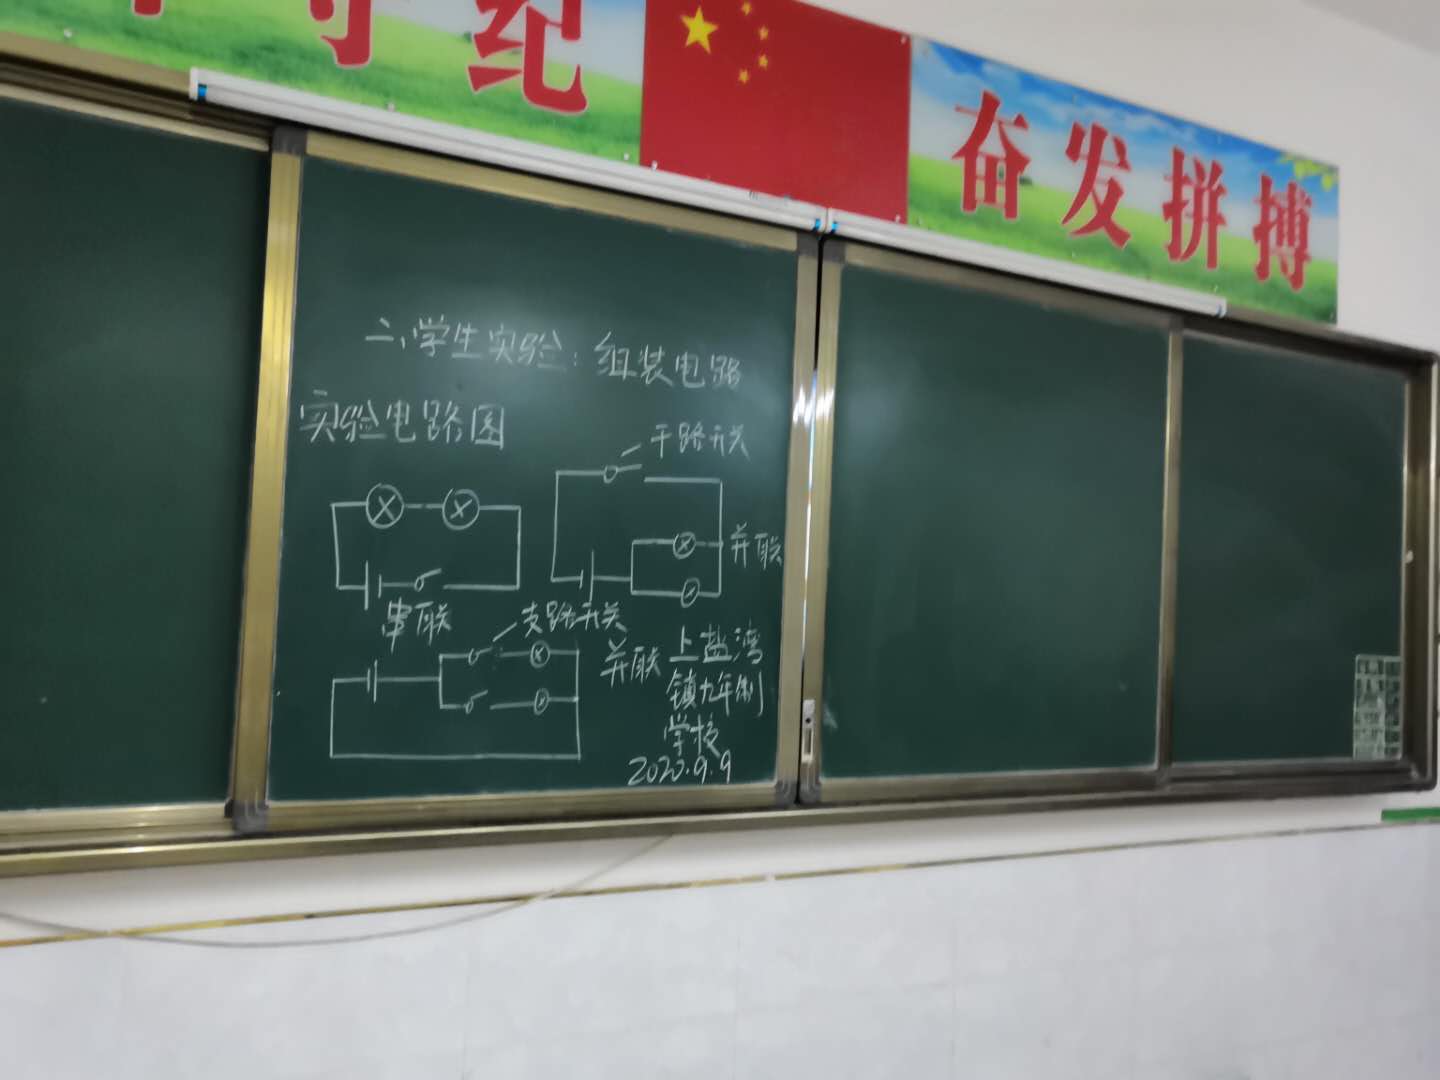 守纪
奋发拼搏
二、学生实验：组装电路
实验电路图
干路开关
并联
串联
支路开关
并联
上盐湾
镇九年制
学校
2020.9.9